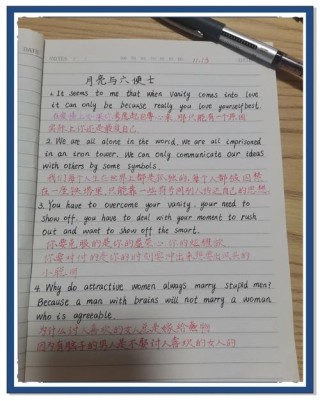 DATE
NOTES
11.13
月亮与六便士
1. It seems to me that when vanity comes into love
it can only be because really you love yourself best.
实际上你还是最爱自己
2. We are all alone in the world. We are all imprisoned
in an iron tower. We can only communicate our ideas
with others by some symbols.
我们每个人生在世界上都是孤独的,每个人都被囚禁
在一座铁塔里,只能靠一些符号同别人传达自己的思想.
3. You have to overcome your vanity. your need to
show off. you have to deal with your moment to rush
out and want to show off the smart.
你要克服的是你的虚荣心.你的炫耀欲
你要对付的是你的时刻要冲出来想要出风头的
小聪明
4. Why do attractive women always marry stupid men?
Because a man with brains will not marry a woman
who is agreeable.
为什么讨人喜欢的女人总是嫁给蠢物
因为有脑子的男人是不娶讨人喜欢的女人的